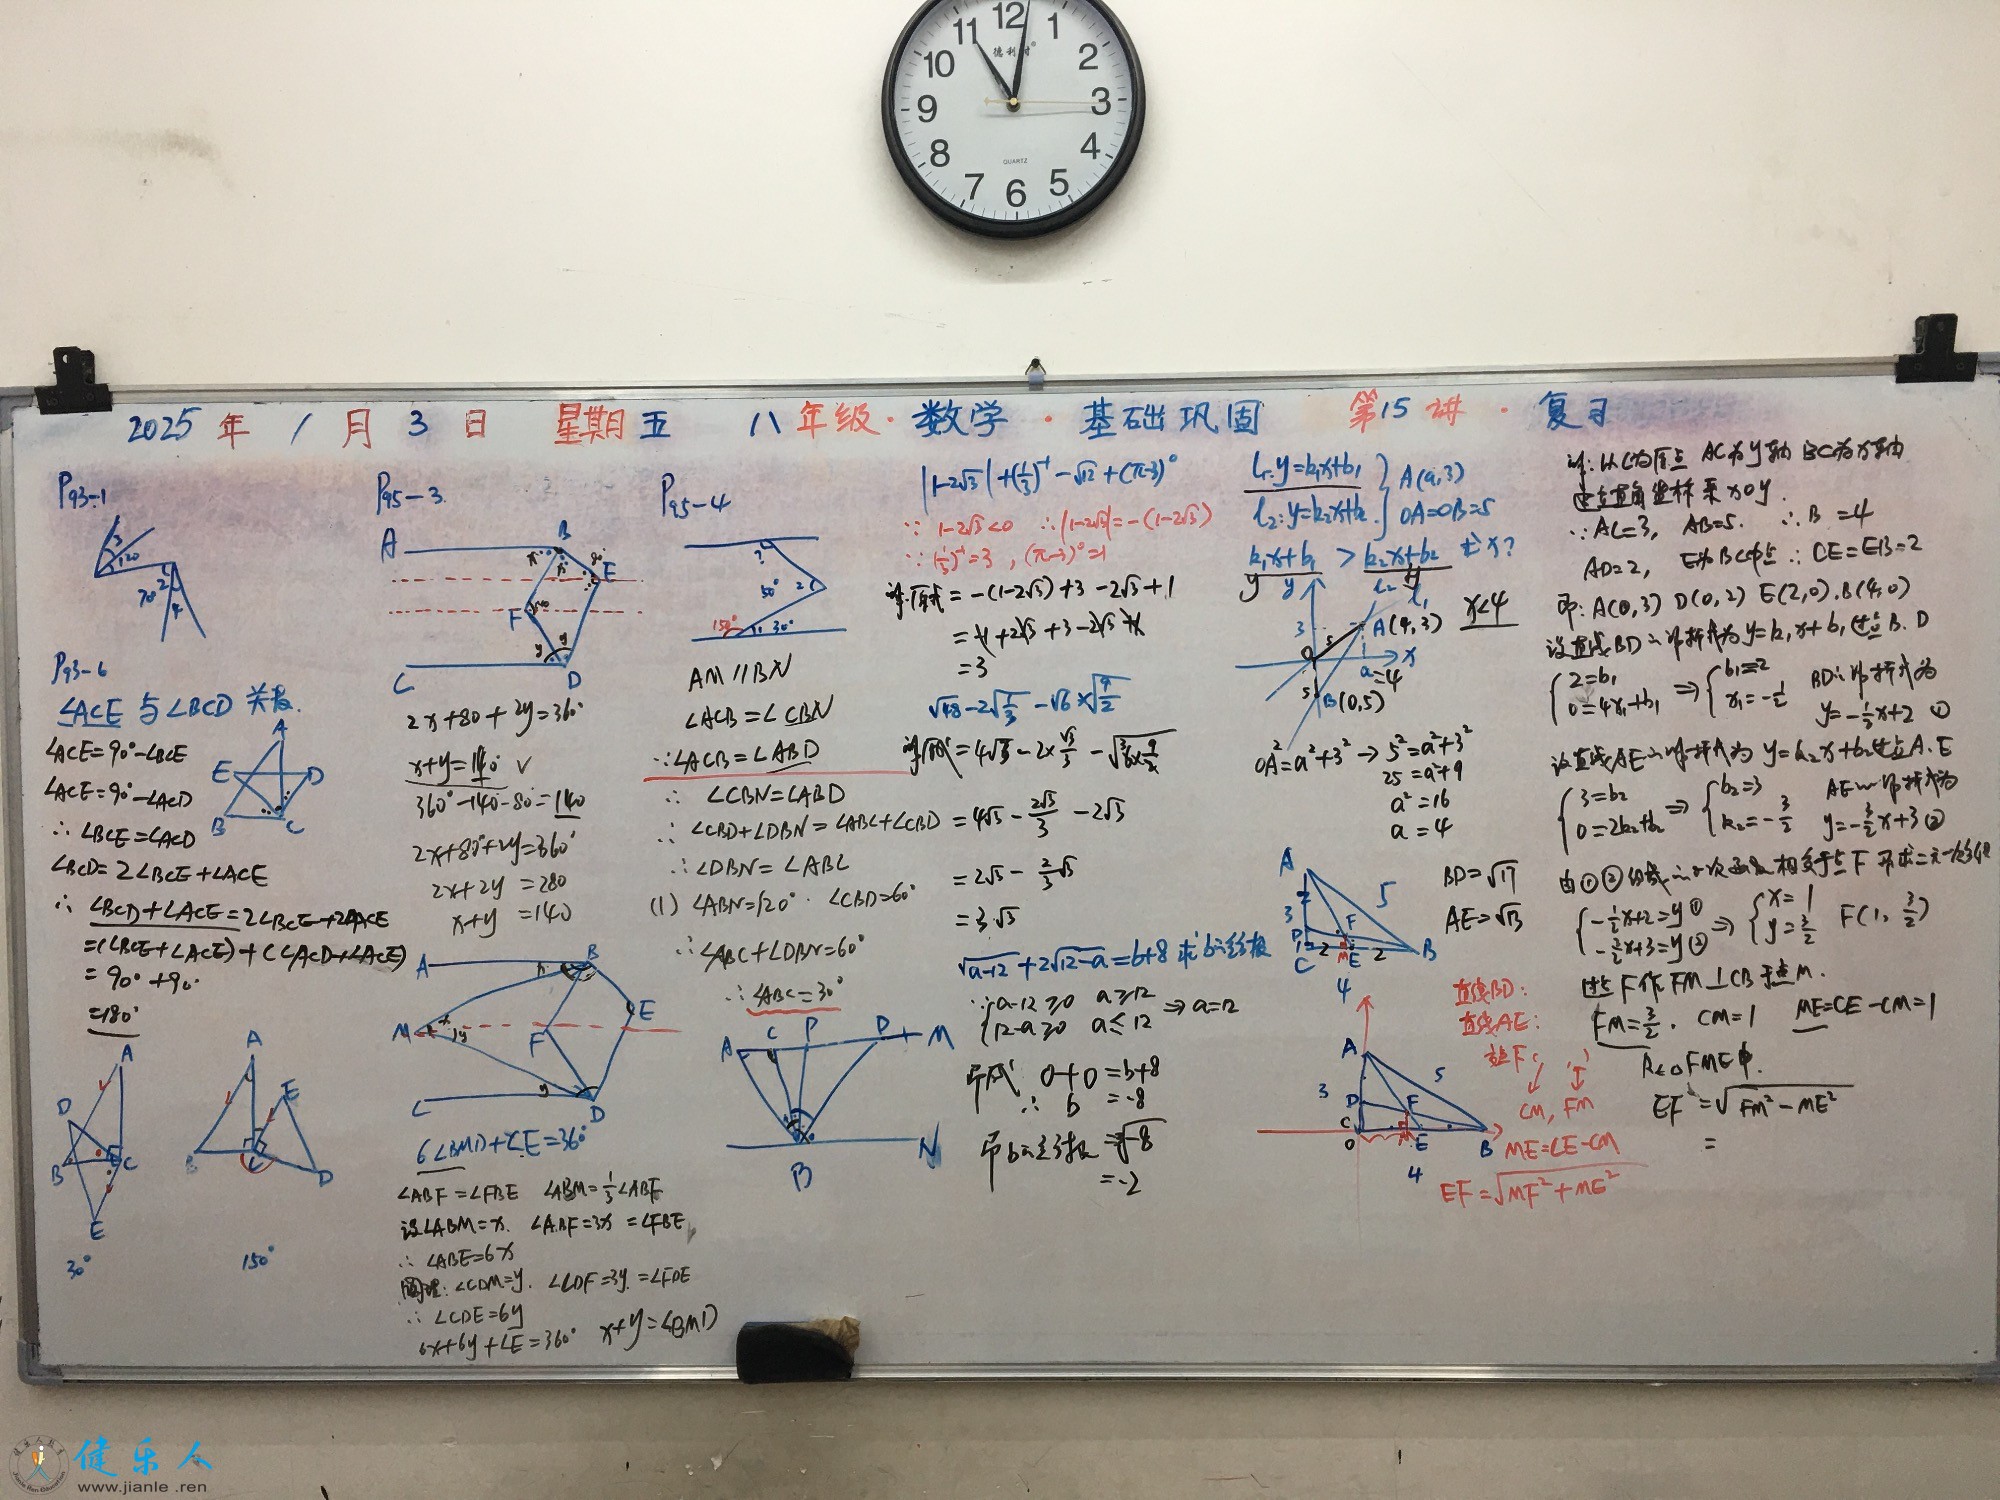 德利时
12
1
2
3
4
5
6
7
8
9
10
11
QUARTZ
2025年1月3日 星期五 八年级·数学·基础巩固 第15讲·复习
P93-1
3
120
70°
2
4
P93-6
∠ACE 与∠BCD 关系.
∠ACE=90°-∠BCE
∠ACE=90°-∠ACD
∴ ∠BCE=∠ACD
∠BCD=2∠BCE+∠ACE
∴ ∠BCD+∠ACE=2∠BCE+2∠ACE
=(∠BCE+∠ACE)+(∠ACD+∠ACE)
=90°+90°
=180°
A
E D
B C
A
D
B C
E
30°
A
E
B C D
150°
P95-3
A B
E
F
C D
2x+80+2y=360°
x+y=140° √
360°-140°-80°=140
2x+80°+2y=360°
2x+2y=280
x+y=140
A B
M E
F
C D
6∠BMD+∠E=360°
∠ABF=∠FBE ∠ABM=1/3∠ABF
设∠ABM=x. ∠ABF=3x=∠FBE
∴ ∠ABE=6x
同理: ∠CDM=y. ∠CDF=3y=∠FDE
∴ ∠CDE=6y
6x+6y+∠E=360° x+y=∠BMD
P95-4
?
50° 2
150° 1 30°
AM//BN
∠ACB=∠CBN
∴∠ACB=∠ABD
∴ ∠CBN=∠ABD
∴ ∠CBD+∠DBN=∠ABC+∠CBD
∴ ∠DBN=∠ABC
(1) ∠ABN=120° ∠CBD=60°
∴ ∠ABC+∠DBN=60°
∴ ∠ABC=30°
A C P D M
B N
|1-2√3|+(1/3)⁻¹-√12+(π-3)⁰
∵ 1-2√3<0 ∴|1-2√3|=-(1-2√3)
∵ (1/3)⁻¹=3, (π-3)⁰=1
解:原式=-(1-2√3)+3-2√3+1
=-1+2√3+3-2√3+1
=3
√48-2√(1/3)-√6×√(9/2)
=4√3-2√3/3-2√3
=2√3-2/3√3
=3√3
√(a-12)+2√(12-a)=b+8 求b的立方根
∵{a-12≥0 a≥12
12-a≥0 a≤12 ⇒a=12
原式 0+0=b+8
∴ b=-8
即b的立方根=³√-8
=-2
l₁:y=k₁x+b₁
l₂:y=k₂x+b₂ } A(a,3)
OA=OB=5
k₁x+b₁>k₂x+b₂ 求x?
y y
y l₂ l₁
3 A(4,3) x<4
5
O x
a=4
5 B(0,5)
OA²=a²+3² → 5²=a²+3²
25=a²+9
a²=16
a=4
A
5
3 F
D
2 2 B
C M E
4
BD=√17
AE=√13
直线BD:
直线AE:
A
3 5
D F
C M E B
O 4
CM, FM
ME=CE-CM
EF=√(MF²+ME²)
解:以C为原点 AC为y轴 BC为x轴
建立直角坐标系xOy.
∵AC=3, AB=5. ∴B=4
AD=2, E为BC中点 ∴CE=EB=2
即:A(0,3) D(0,2) E(2,0),B(4,0)
设直线BD的解析式为y=k₁x+b₁过点B.D
{2=b₁
0=4x₁+b₁ ⇒{b₁=2
x₁=-1/2 BD的解析式为
y=-1/2x+2 ①
设直线AE的解析式为 y=k₂x+b₂过点A.E
{3=b₂
0=2k₂+b₂ ⇒{b₂=3
k₂=-3/2 AE的解析式为
y=-3/2x+3 ②
{-1/2x+2=y①
-3/2x+3=y② ⇒{x=1
y=3/2 F(1,3/2)
过点F作FM⊥CB于点M.
FM=3/2. CM=1 ME=CE-CM=1
Rt△FME中.
EF=√(FM²-ME²)
=
健乐人
www.jianle.ren